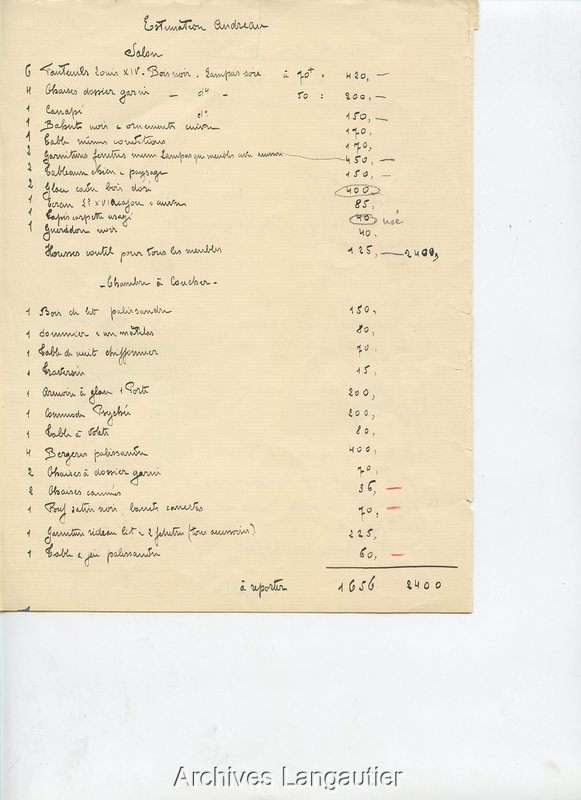 Estimation Andreau
Salon
6 Fauteuils Louis XIV. Bois noir. Lampas soie à 70f = 420, —
4 Chaises dossier garni — d° — 50 = 200, —
1 Canapé d° 150, —
1 Bahut noir & ornements cuivre 170,
1 Table mêmes conditions 170,
2 Garnitures fenêtres même Lampas que meubles avec accessoires 450, —
2 Tableaux chien & paysage 150, —
2 Glaces cadre bois doré 400,
1 Ecran Ls XVI acajou & cuivre 85,
1 Tapis carpette usagé 40, usé
1 Guéridon noir 40,
Housses coutil pour tous les meubles 125, — 2400,
- Chambre à Coucher -
1 Bois de lit palissandre 150,
1 sommier & un matelas 80,
1 Table de nuit chiffonnier 70,
1 Traversin 15,
1 Armoire à glace 1 Porte 200,
1 Commode Psyché 200,
1 Table à volets 80,
4 Bergères palissandre 400,
2 Chaises à dossier garni 70,
2 Chaises cannées 36, —
1 Pouf satin noir, bandes 70, —
1 Garniture rideau lit & 2 fenêtres (tous accessoires) 225,
1 Table à jeu palissandre 60, —
à reporter 1656 2400
Archives Langautier